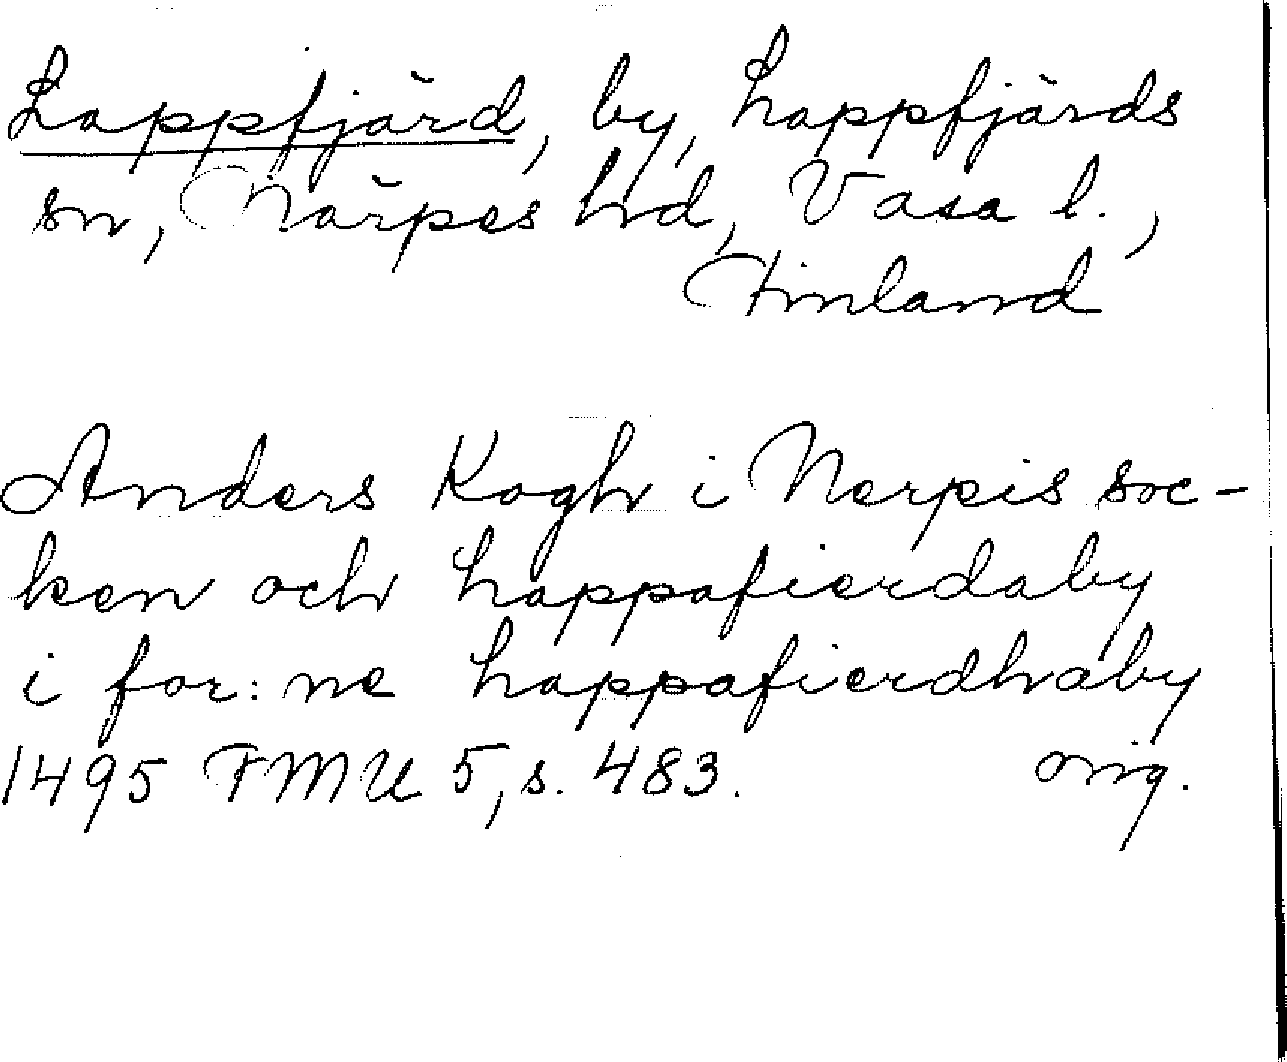 Lappfjärd, by, Lappfjärds
sn, Närpes hd, Vasa l.,
Finland
Anders Kogh i Nerpis soc-
ken och Lappafierdaby
i for:ne Lappafierdhaby
1495 FMU 5, s. 483. orig.